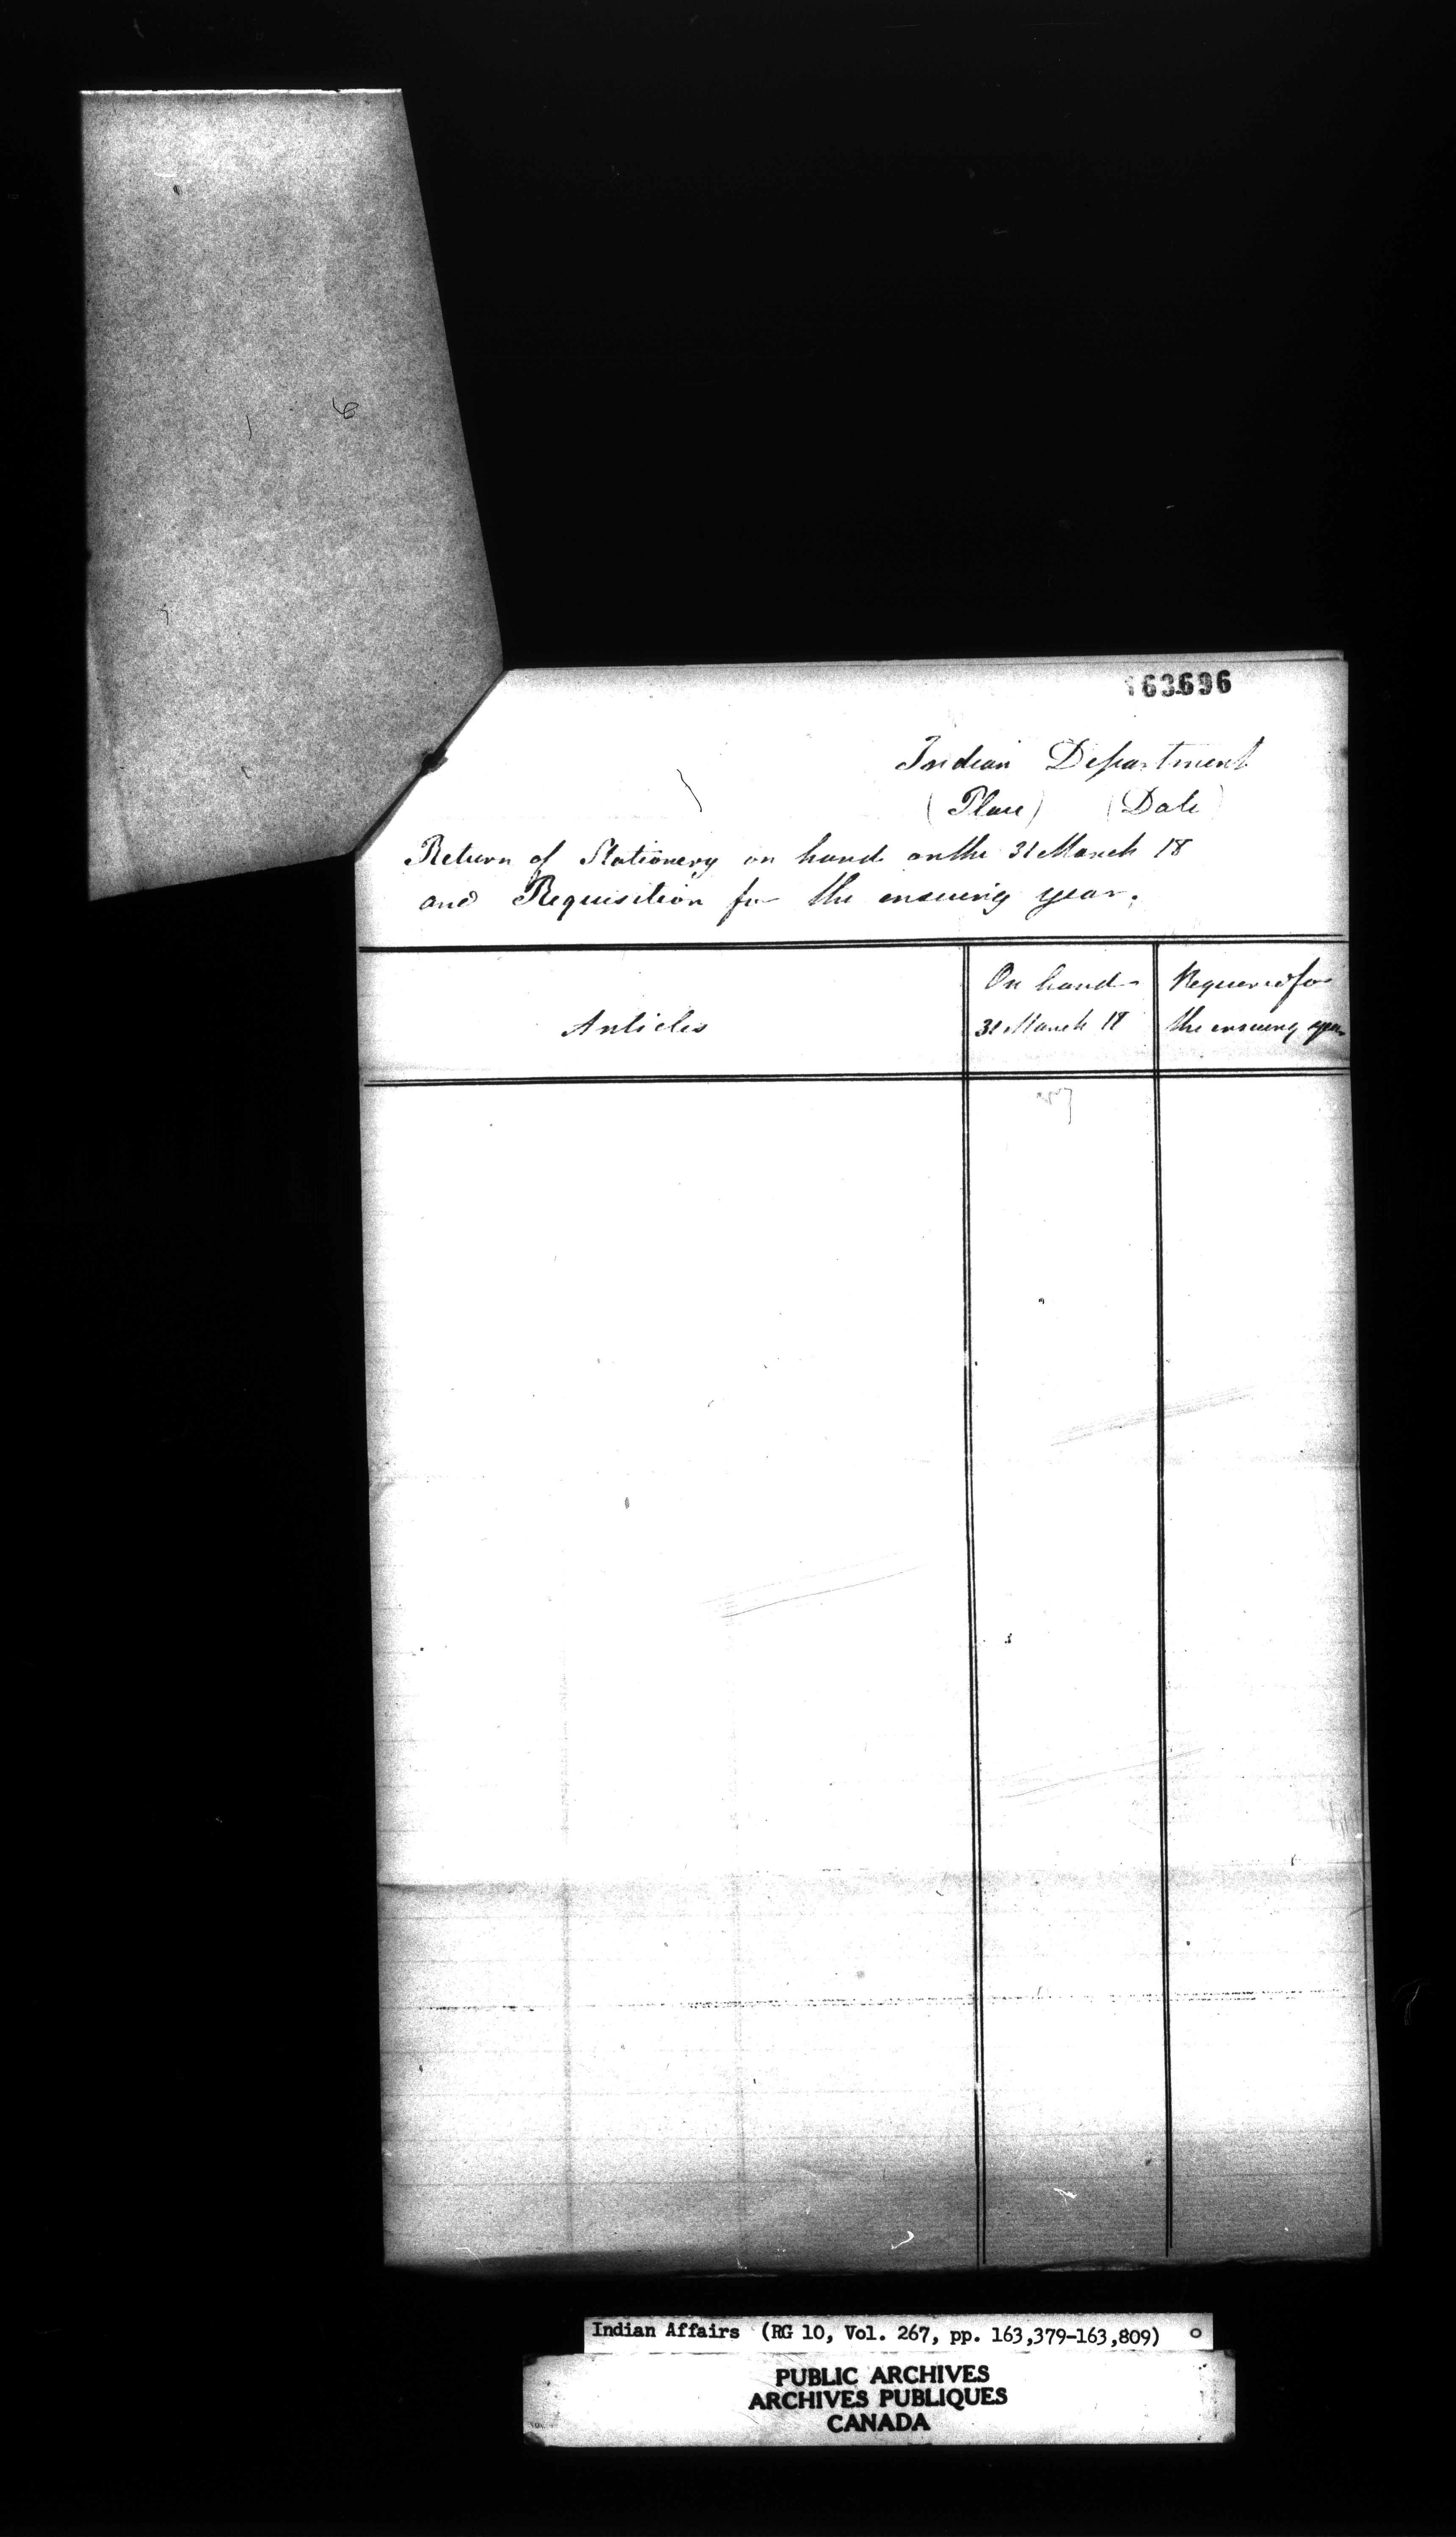 163696
Indian Department
(Place) (Date)
Return of Stationery on hand on the 31 March 18
and Requisition for the ensuing year.
Articles
On hand
31 March 18
Required for
the ensuing year
Indian Affairs (RG 10, Vol. 267, pp. 163,379-163,809)
PUBLIC ARCHIVES
ARCHIVES PUBLIQUES
CANADA